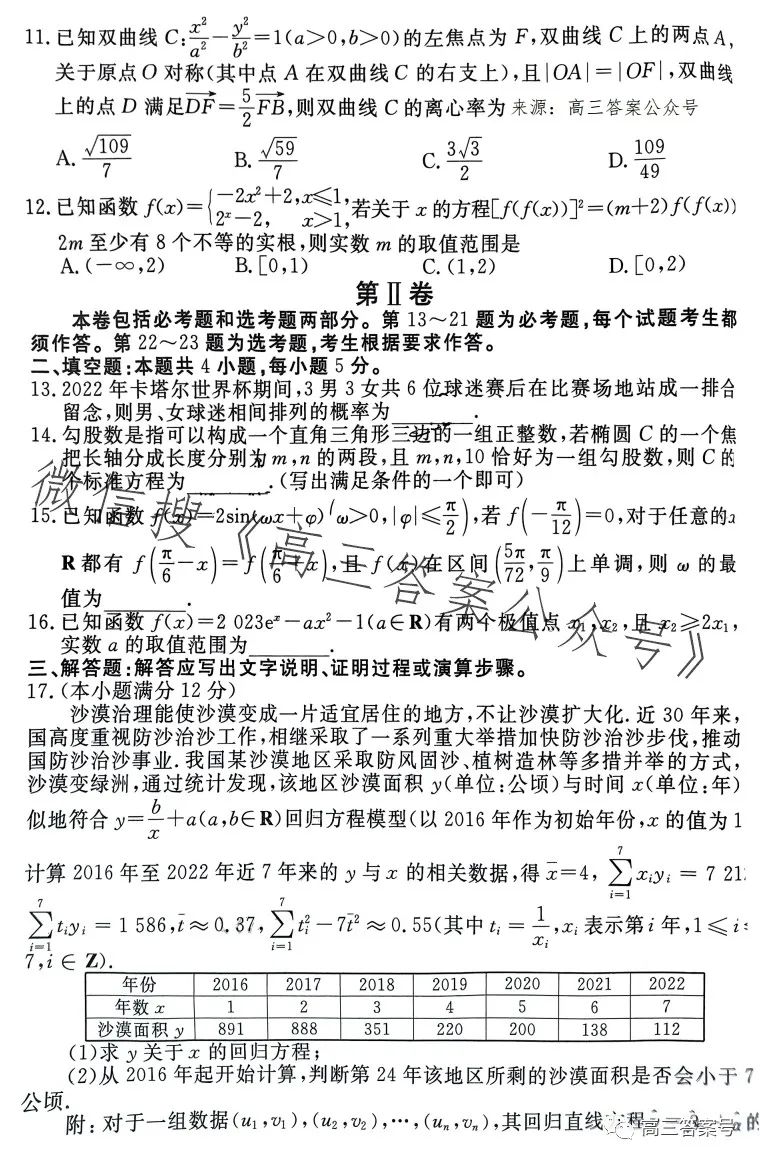 11.已知双曲线 C:x²/a²-y²/b²=1(a>0,b>0)的左焦点为 F,双曲线 C 上的两点 A,
关于原点 O 对称(其中点 A 在双曲线 C 的右支上),且|OA|=|OF|,双曲线
上的点 D 满足DF→=5/2FB→,则双曲线 C 的离心率为 来源: 高三答案公众号
A.√109/7 B.√59/7 C.3√3/2 D.109/49
12.已知函数 f(x)={-2x²+2,x≤1, 2ˣ-2, x>1,若关于 x 的方程[f(f(x))]²=(m+2)f(f(x))
2m 至少有 8 个不等的实根,则实数 m 的取值范围是
A.(-∞,2) B.[0,1) C.(1,2) D.[0,2)
第Ⅱ卷
本卷包括必考题和选考题两部分。第 13～21 题为必考题,每个试题考生都
须作答。第 22～23 题为选考题,考生根据要求作答。
二、填空题:本题共 4 小题,每小题 5 分。
13.2022 年卡塔尔世界杯期间,3 男 3 女共 6 位球迷赛后在比赛场地站成一排合
留念,则男、女球迷相间排列的概率为________.
14.勾股数是指可以构成一个直角三角形三边的一组正整数,若椭圆 C 的一个焦
把长轴分成长度分别为 m,n 的两段,且 m,n,10 恰好为一组勾股数,则 C 的
个标准方程为________.(写出满足条件的一个即可)
15.已知函数 f(x)=2sin(ωx+φ)(ω>0,|φ|≤π/2),若 f(-π/12)=0,对于任意的
R 都有 f(π/6-x)=f(π/6+x),且 f(x)在区间(5π/72,π/9)上单调,则 ω 的最
值为________.
16.已知函数 f(x)=2 023eˣ-ax²-1(a∈R)有两个极值点 x₁,x₂,且 x₂≥2x₁,
实数 a 的取值范围为________.
三、解答题:解答应写出文字说明、证明过程或演算步骤。
17.(本小题满分 12 分)
沙漠治理能使沙漠变成一片适宜居住的地方,不让沙漠扩大化.近 30 年来,
国高度重视防沙治沙工作,相继采取了一系列重大举措加快防沙治沙步伐,推动
国防沙治沙事业.我国某沙漠地区采取防风固沙、植树造林等多措并举的方式,
沙漠变绿洲,通过统计发现,该地区沙漠面积 y(单位:公顷)与时间 x(单位:年)
似地符合 y=b/x+a(a,b∈R)回归方程模型(以 2016 年作为初始年份,x 的值为 1
计算 2016 年至 2022 年近 7 年来的 y 与 x 的相关数据,得 x̄=4, ∑⁷ᵢ₌₁xᵢyᵢ = 7 21
∑⁷ᵢ₌₁tᵢyᵢ = 1 586,t̄≈0.37,∑⁷ᵢ₌₁tᵢ²-7t̄²≈0.55(其中 tᵢ=1/xᵢ,xᵢ 表示第 i 年,1≤i
7,i∈Z).
年份 2016 2017 2018 2019 2020 2021 2022
年数 x 1 2 3 4 5 6 7
沙漠面积 y 891 888 351 220 200 138 112
(1)求 y 关于 x 的回归方程;
(2)从 2016 年起开始计算,判断第 24 年该地区所剩的沙漠面积是否会小于 7
公顷.
附:对于一组数据(u₁,v₁),(u₂,v₂),…,(uₙ,vₙ),其回归直线方程
微信搜《高三答案公众号》
高三答案号